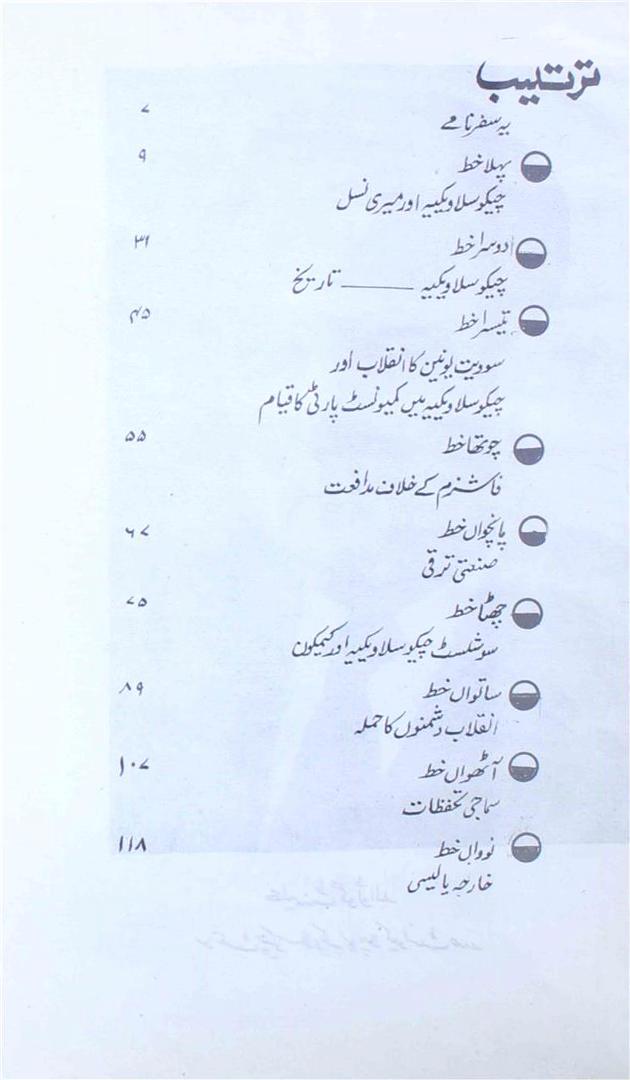 ترتیب
یہ سفرنامے ۷
پہلا خط ۹
چیکوسلاویکیہ اور میری نسل
دوسرا خط ۳۱
چیکوسلاویکیہ ——— تاریخ
تیسرا خط ۴۵
سوویت یونین کا انقلاب اور
چیکوسلاویکیہ میں کمیونسٹ پارٹی کا قیام
چوتھا خط ۵۵
فاشزم کے خلاف مدافعت
پانچواں خط ۶۷
صنعتی ترقی
چھٹا خط ۷۵
سوشلسٹ چیکوسلاویکیہ اور کیمکون
ساتواں خط ۸۹
انقلاب دشمنوں کا حملہ
آٹھواں خط ۱۰۷
سماجی تحفظات
نوواں خط ۱۱۸
خارجہ پالیسی